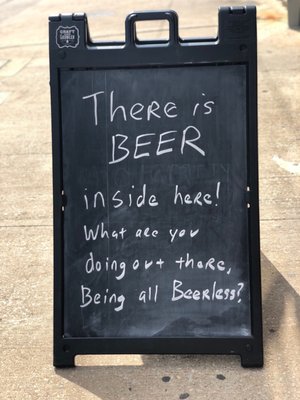 There is
BEER
inside here!
What are you
doing out there,
Being all Beerless?